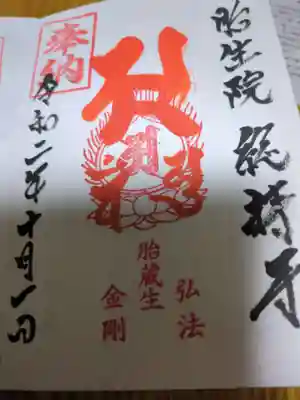 胎生院
総持寺
奉納
弘法
胎蔵生
金剛
令和二年十月一日